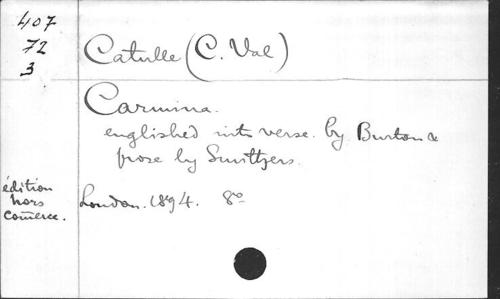 407
72
3
Catulle (C. Val)
Carmina.
englished into verse. by Burton &
prose by Smithers.
édition
hors
comerce.
London. 1894. 8°